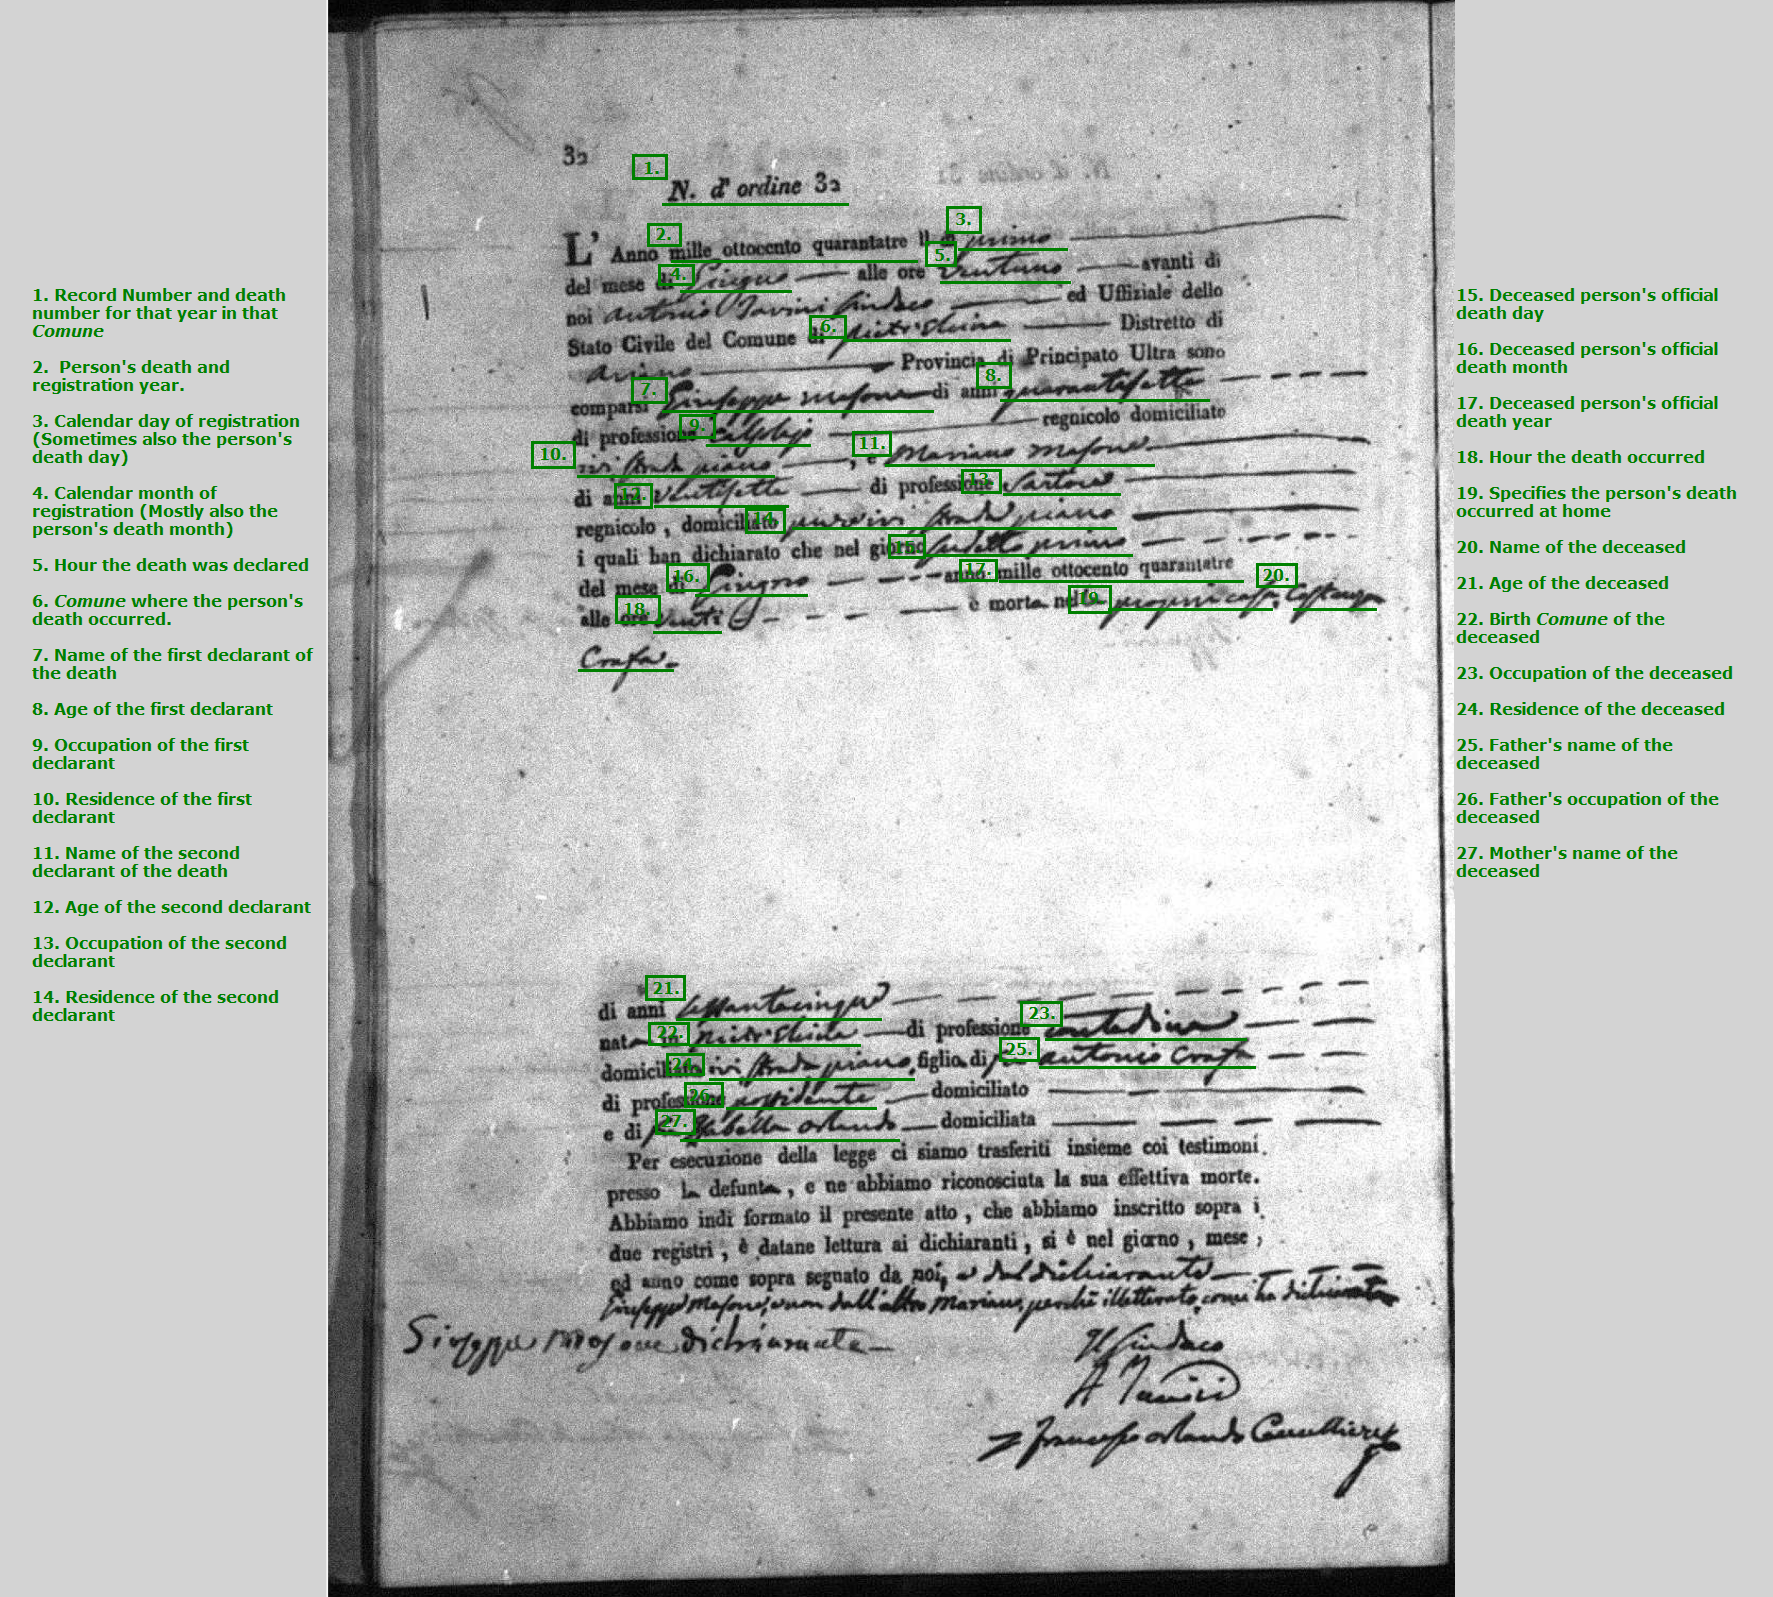 1. Record Number and death
number for that year in that
Comune
2. Person's death and
registration year.
3. Calendar day of registration
(Sometimes also the person's
death day)
4. Calendar month of
registration (Mostly also the
person's death month)
5. Hour the death was declared
6. Comune where the person's
death occurred.
7. Name of the first declarant of
the death
8. Age of the first declarant
9. Occupation of the first
declarant
10. Residence of the first
declarant
11. Name of the second
declarant of the death
12. Age of the second declarant
13. Occupation of the second
declarant
14. Residence of the second
declarant
32
1.
N. d'ordine 32
2. 3.
L' Anno mille ottocento quarantatre il dì primo
4. 5.
del mese di Giugno alle ore ventuno avanti di
noi Antonio Iavini Sindaco ed Uffiziale dello
6.
Stato Civile del Comune di Pietrelcina Distretto di
Ariano Provincia di Principato Ultra sono
7. 8.
comparsi Giuseppe Masone di anni quarantasette
9.
di professione regnicolo domiciliato
10. 11.
ivi strada piano, e Mariano Masone
12. 13.
di anni ventisette di professione Sartore
14.
regnicolo, domiciliato pure ivi strada piano
15.
i quali han dichiarato che nel giorno suddetto primo
16. 17. 20.
del mese di Giugno anno mille ottocento quarantatre
18. 19.
alle ore venti è morta nella propria casa Costanza
Crafa.
21.
di anni sessantacinque
22. 23.
nata in Pietrelcina di professione contadina
24. 25.
domiciliata ivi strada piano, figlia di fu Antonio Crafa
26.
di professione possidente domiciliato
27.
e di fu Isabella Orlando domiciliata
Per esecuzione della legge ci siamo trasferiti insieme coi testimoni
presso la defunta, e ne abbiamo riconosciuta la sua effettiva morte.
Abbiamo indi formato il presente atto, che abbiamo inscritto sopra i
due registri, è datane lettura ai dichiaranti, si è nel giorno, mese,
ed anno come sopra segnato da noi, e dal dichiarante
Giuseppe Masone, e non dall'altro Mariano, perchè illetterato, come ha dichiarato
Giuseppe Masone dichiarante
Il Sindaco
A Iavini
Francesco Orlando Cancelliere
15. Deceased person's official
death day
16. Deceased person's official
death month
17. Deceased person's official
death year
18. Hour the death occurred
19. Specifies the person's death
occurred at home
20. Name of the deceased
21. Age of the deceased
22. Birth Comune of the
deceased
23. Occupation of the deceased
24. Residence of the deceased
25. Father's name of the
deceased
26. Father's occupation of the
deceased
27. Mother's name of the
deceased